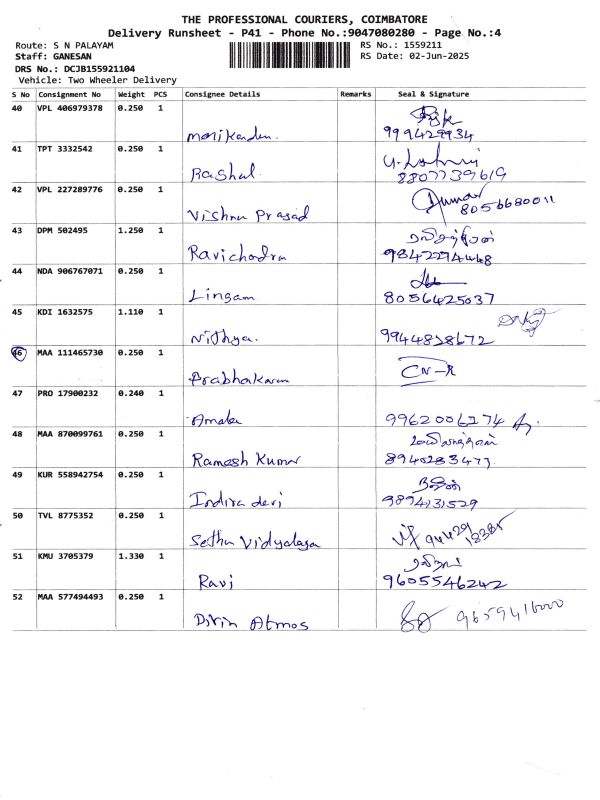 THE PROFESSIONAL COURIERS, COIMBATORE
Delivery Runsheet - P41 - Phone No.:9047080280 - Page No.:4
Route: S N PALAYAM RS No.: 1559211
Staff: GANESAN RS Date: 02-Jun-2025
DRS No.: DCJB155921104
Vehicle: Two Wheeler Delivery
S No Consignment No Weight PCS Consignee Details Remarks Seal & Signature
40 VPL 406979378 0.250 1
Manikandan. 999429934
41 TPT 3332542 0.250 1
Rashal. 8807739619
42 VPL 227289776 0.250 1
Vishnu Prasad Kumar 8056680011
43 DPM 502495 1.250 1
Ravichandra 9842274468
44 NDA 906767071 0.250 1
Lingam 8056425037
45 KDI 1632575 1.110 1
Nithya. 9944828672
46 MAA 111465730 0.250 1
Prabhakaran CN-R
47 PRO 17900232 0.240 1
9962006274
48 MAA 870099761 0.250 1
Ramesh Kumar 8940283477
49 KUR 558942754 0.250 1
Indira devi 9894731529
50 TVL 8775352 0.250 1
Sethu Vidyalaya 94429 18385
51 KMU 3705379 1.330 1
Ravi 9605546242
52 MAA 577494493 0.250 1
Divin Atmos 9659416000